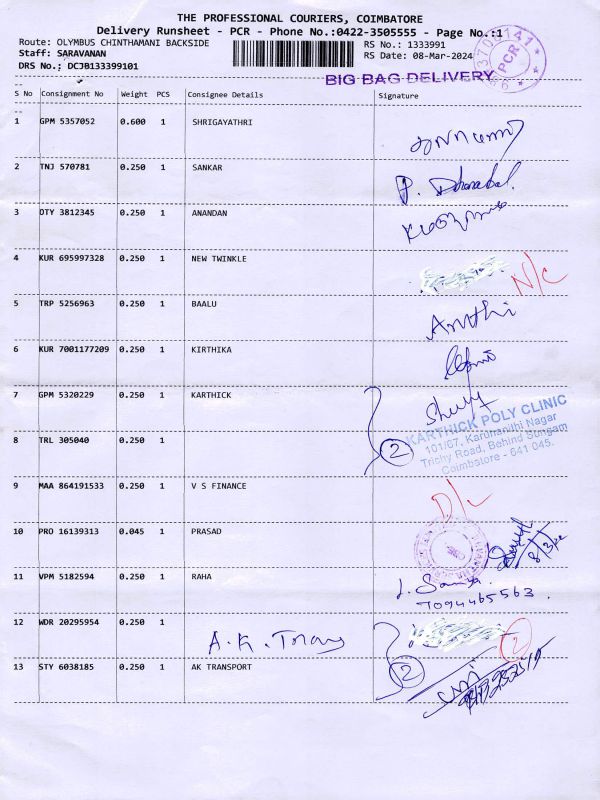 THE PROFESSIONAL COURIERS, COIMBATORE
Delivery Runsheet - PCR - Phone No.:0422-3505555 - Page No.:1
Route: OLYMBUS CHINTHAMANI BACKSIDE RS No.: 1333991
Staff: SARAVANAN RS Date: 08-Mar-2024
DRS No.; DCJB133399101
BIG BAG DELIVERY
PCR
S No Consignment No Weight PCS Consignee Details Signature
1 GPM 5357052 0.600 1 SHRIGAYATHRI
2 TNJ 570781 0.250 1 SANKAR
P. Dhanabal
3 DTY 3812345 0.250 1 ANANDAN
4 KUR 695997328 0.250 1 NEW TWINKLE
N/C
5 TRP 5256963 0.250 1 BAALU
6 KUR 7001177209 0.250 1 KIRTHIKA
7 GPM 5320229 0.250 1 KARTHICK
KARTHICK POLY CLINIC
101/67, Karunanithi Nagar
Trichy Road, Behind Sungam
Coimbatore - 641 045.
2
8 TRL 305040 0.250 1
9 MAA 864191533 0.250 1 V S FINANCE
D/L
10 PRO 16139313 0.045 1 PRASAD
11 VPM 5182594 0.250 1 RAHA
7094465563.
12 WDR 20295954 0.250 1
2
2
13 STY 6038185 0.250 1 AK TRANSPORT